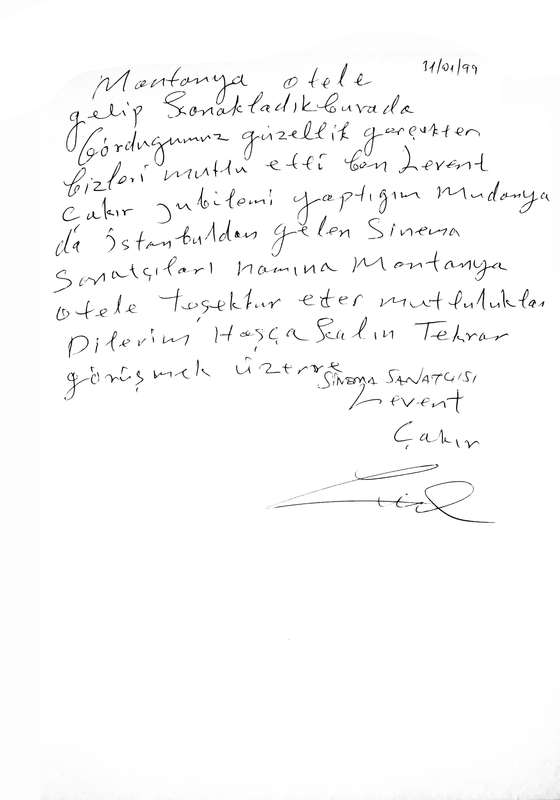 31/01/99
Montanya otele
gelip Konakladık burada
Gördugumuz güzellik gerçekten
bizleri mutlu etti ben Levent
Çakır Jubilemi yaptıgım Mudanya
da istanbuldan gelen Sinema
Sanatçıları namına Montanya
otele Teşekkür eder mutluluklar
Dilerim Hoşça Kalın Tekrar
görüşmek üzere
SİNEMA SANATÇISI
Levent
Çakır